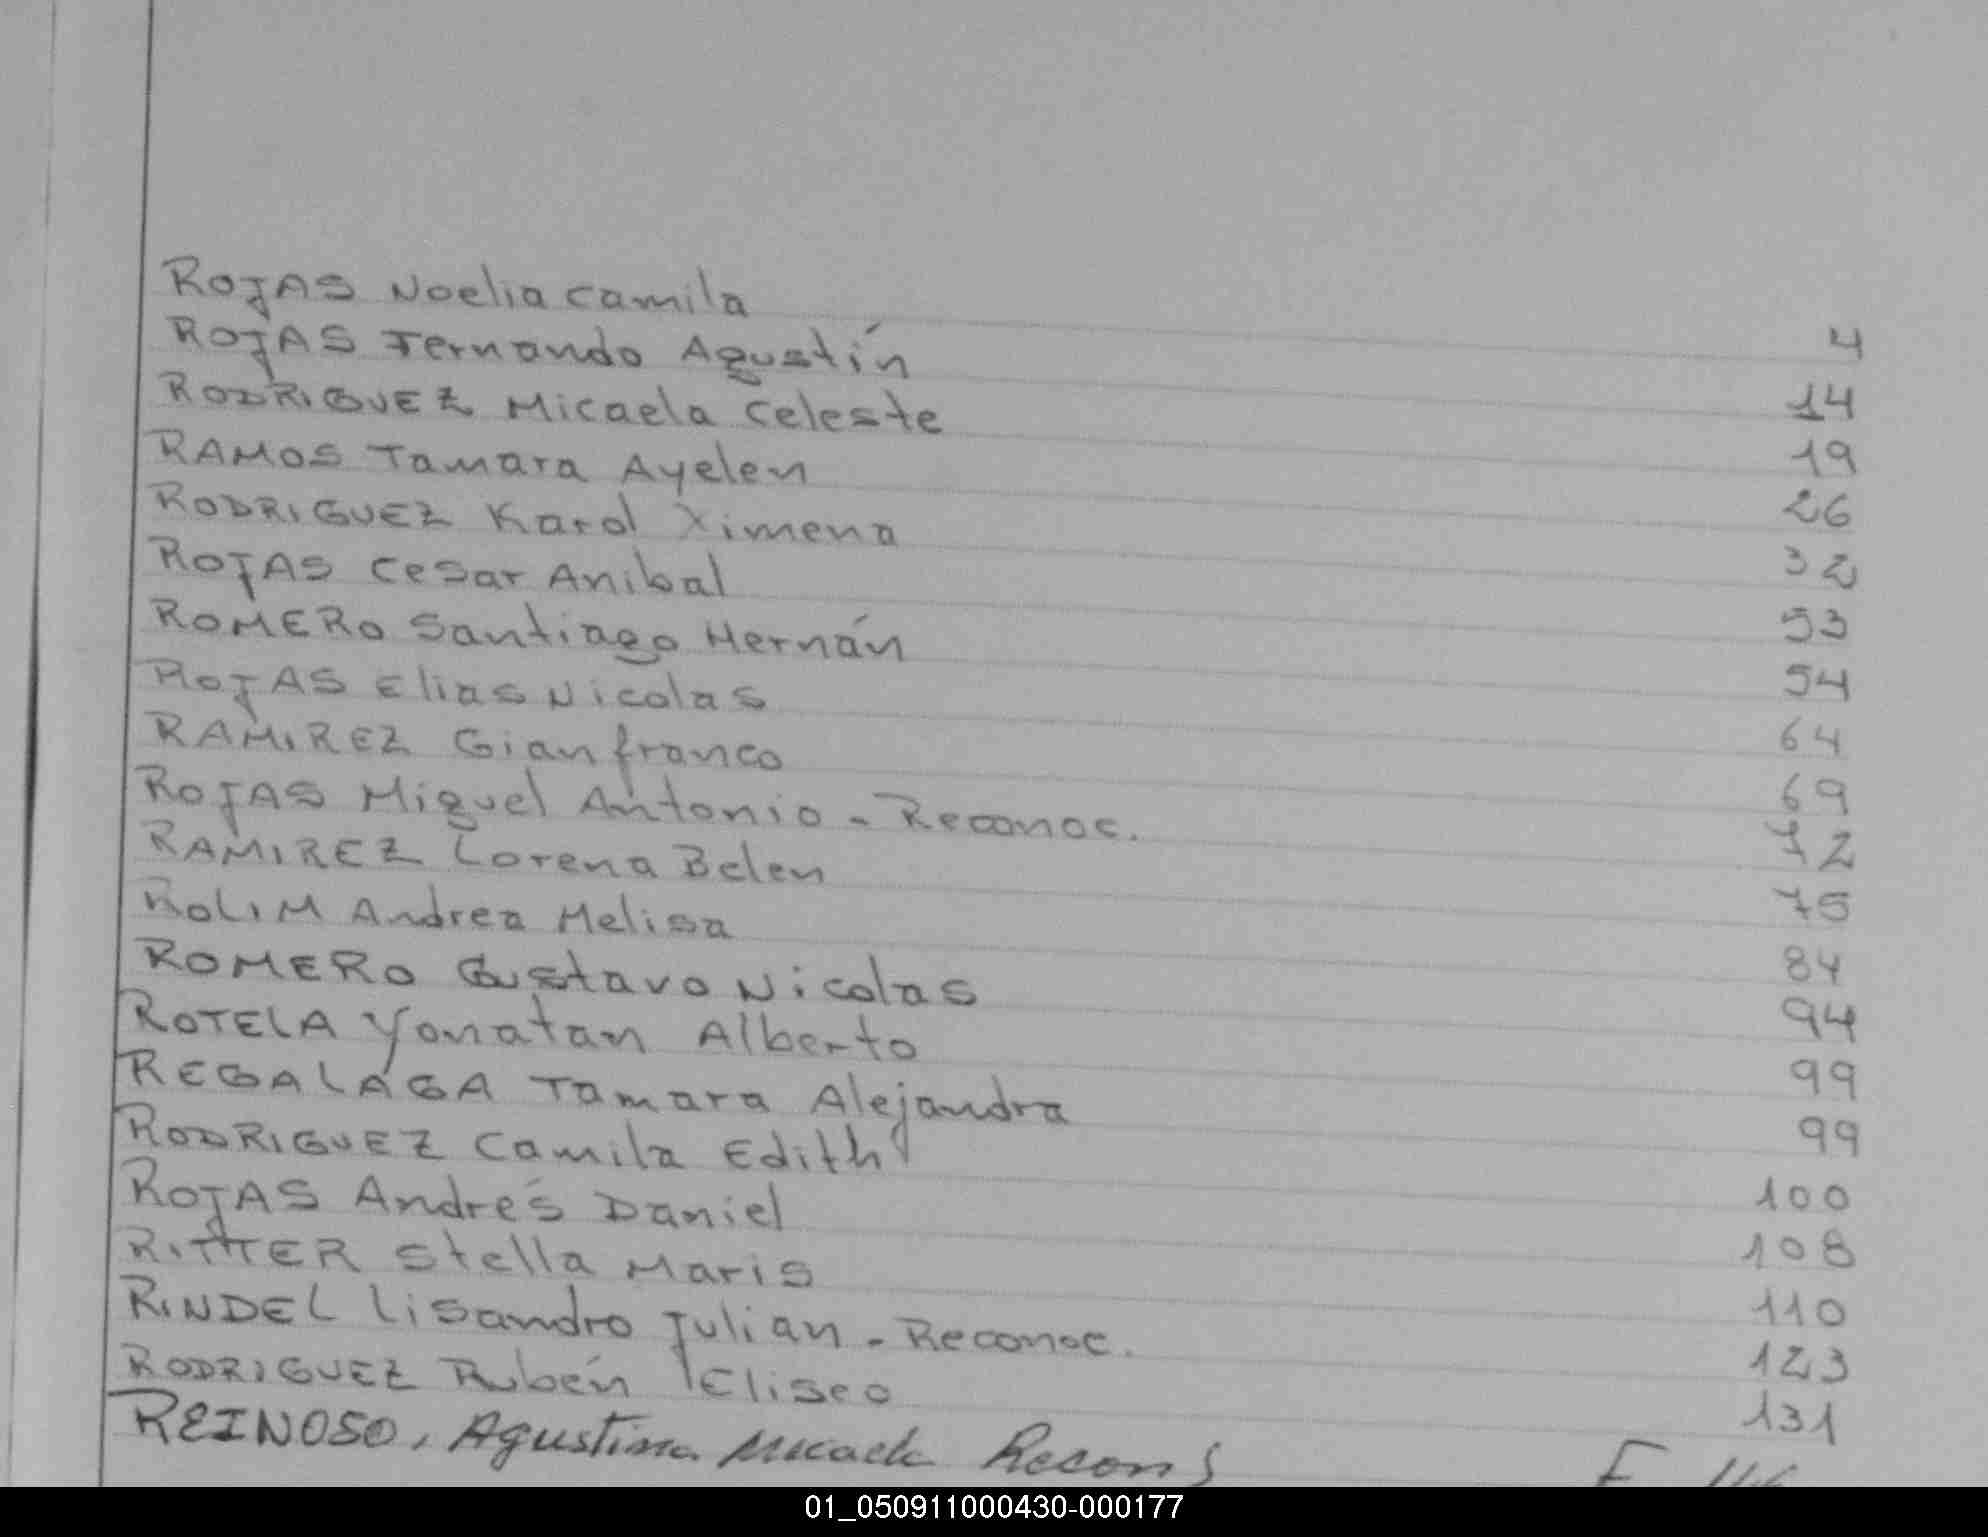 ROJAS Noelia Camila 4
ROJAS Fernando Agustín 14
RODRIGUEZ Micaela Celeste 19
RAMOS Tamara Ayelen 26
RODRIGUEZ Karol Ximena 32
ROJAS Cesar Anibal 53
ROMERO Santiago Hernán 54
ROJAS Elias Nicolas 64
RAMIREZ Gianfranco 69
ROJAS Miguel Antonio - Reconoc. 72
RAMIREZ Lorena Belen 75
ROLIM Andrea Melisa 84
ROMERO Gustavo Nicolas 94
ROTELA Yonatan Alberto 99
REGALAGA Tamara Alejandra 99
RODRIGUEZ Camila Edith 100
ROJAS Andrés Daniel 108
RITTER Stella Maris 110
RINDEL Lisandro Julian - Reconoc. 123
RODRIGUEZ Rubén Eliseo 131
REINOSO, Agustina Micaela
01_050911000430-000177